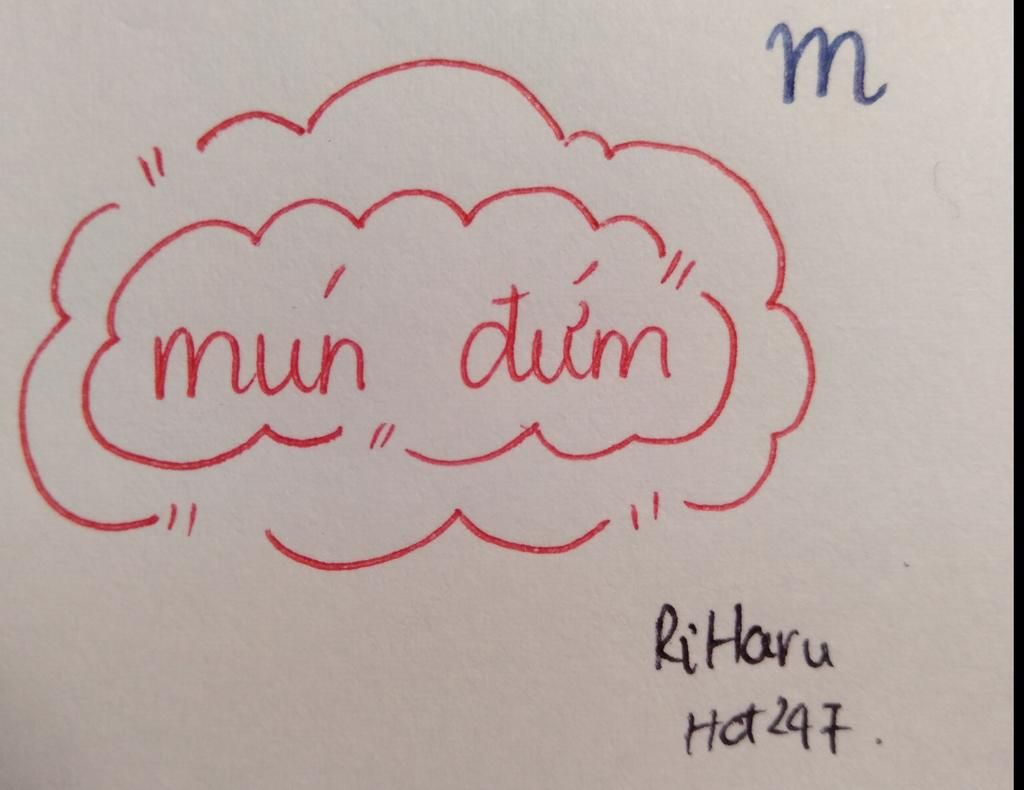 m
mún đứm
RiHaru
Hot247.